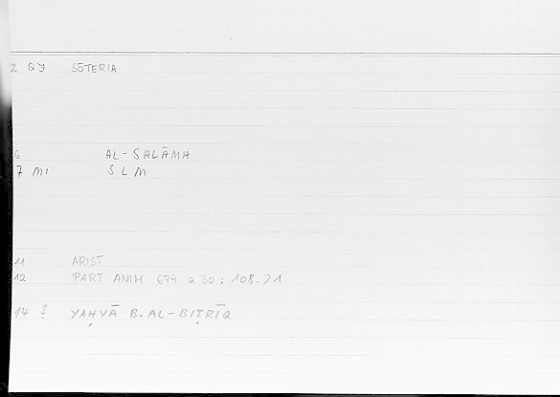 2 QJ SŌTERIA
6 AL-SALĀMA
7 MI SLM
11 ARIST
12 PART ANIM 679 a 30 ; 108.21
14 ? YAḤYĀ B. AL-BIṬRĪQ